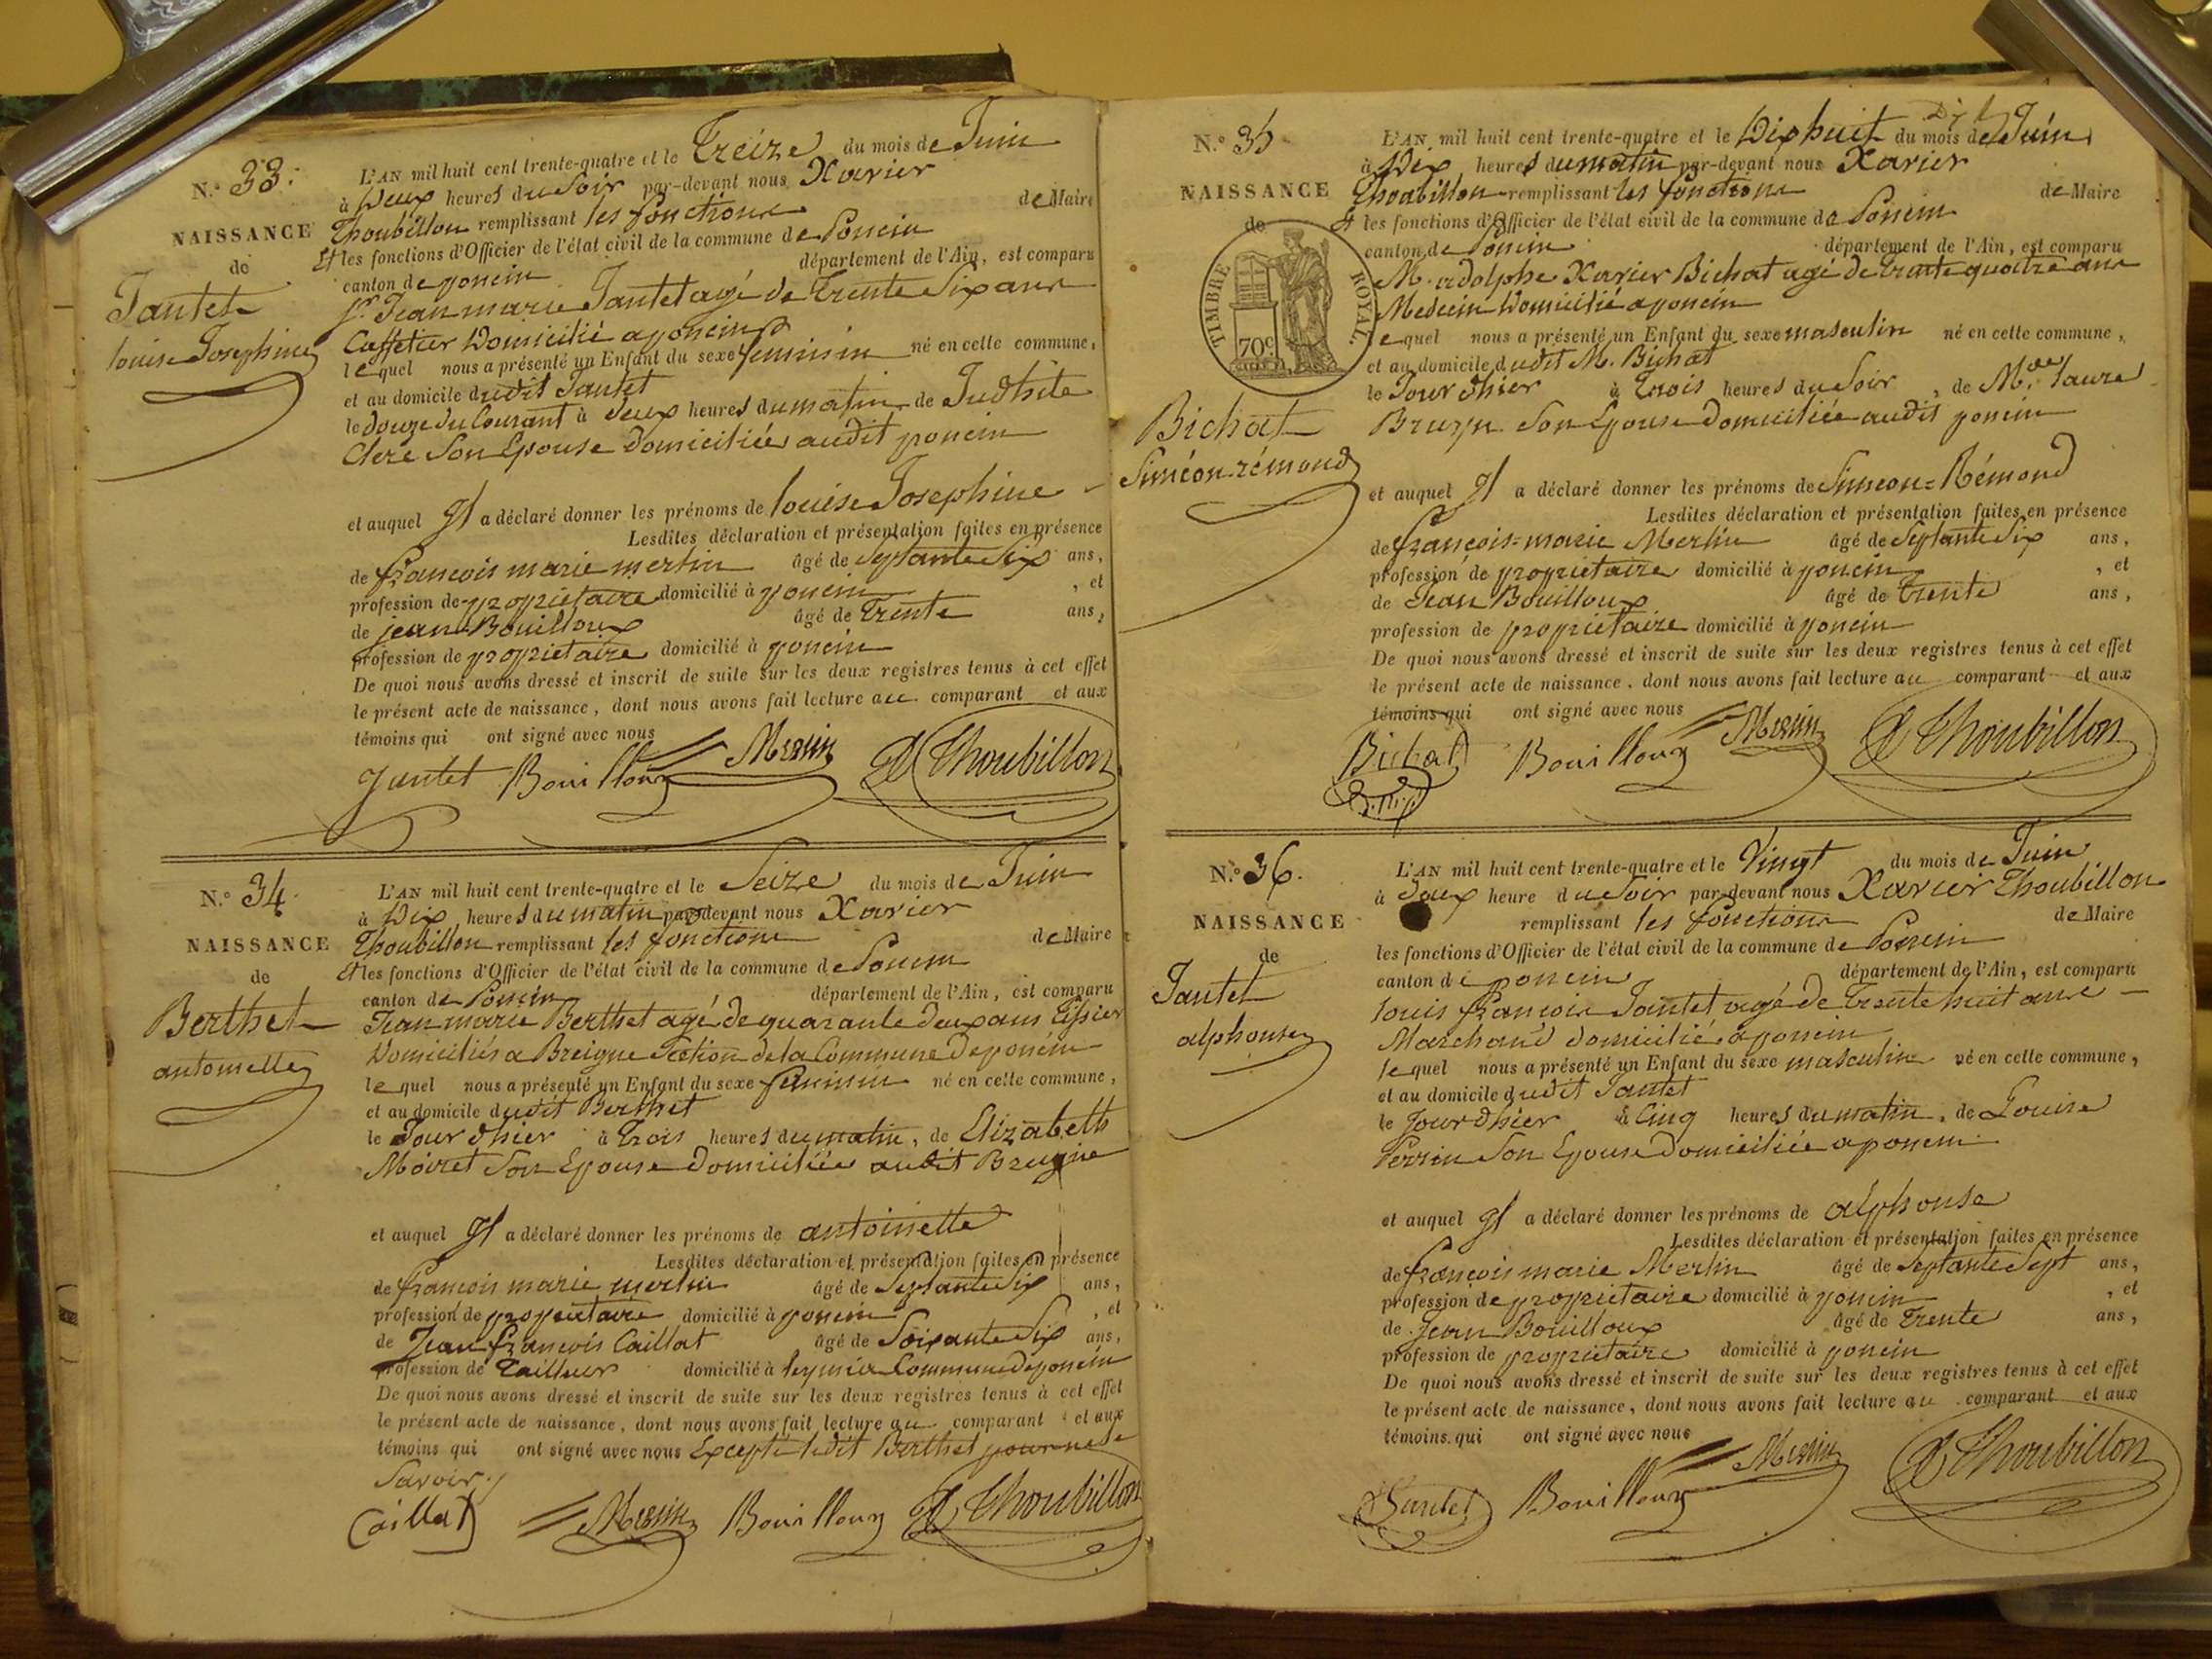 N.º 33.
NAISSANCE
de
Jantet
louise Josephine
L'AN mil huit cent trente-quatre et le Treize du mois de Juin
à Deux heures du Soir par-devant nous Xavier
Thoubillon remplissant les fonctions de Maire
et les fonctions d'Officier de l'état civil de la commune de Poncin
canton de poncin département de l'Ain, est comparu
Sr. Jean marie Jantet agé de Trente Six ans
Caffetier Domicilié a poncin
lequel nous a présenté un Enfant du sexe feminin né en cette commune,
et au domicile dudit Jantet
le douze du Courant à deux heures du matin de Judhite
Clerc Son Epouse Domiciliée audit poncin
et auquel Il a déclaré donner les prénoms de louise Josephine
Lesdites déclaration et présentation faites en présence
de françois marie merlin âgé de Septante Six ans,
profession de propriétaire domicilié à poncin, et
de jean Bouilloux âgé de Trente ans,
profession de propriétaire domicilié à poncin
De quoi nous avons dressé et inscrit de suite sur les deux registres tenus à cet effet
le présent acte de naissance, dont nous avons fait lecture au comparant et aux
témoins qui ont signé avec nous
Jantet Bouilloux Merlin Thoubillon
N.º 34.
NAISSANCE
de
Berthet
antoinette
L'AN mil huit cent trente-quatre et le Seize du mois de Juin
à Dix heures du matin par-devant nous Xavier
Thoubillon remplissant les fonctions de Maire
et les fonctions d'Officier de l'état civil de la commune de Poncin
canton de Poncin département de l'Ain, est comparu
Jean marie Berthet agé de quarante deux ans Tissier
Domiciliés a Breigne Section de la Commune de poncin
lequel nous a présenté un Enfant du sexe feminin né en cette commune,
et au domicile dudit Berthet
le Jour d'hier à Trois heures du matin, de Elizabeth
Moiret Son Epouse Domiciliée audit Breigne
et auquel Il a déclaré donner les prénoms de antoinette
Lesdites déclaration et présentation faites en présence
de françois marie merlin âgé de Septante Six ans,
profession de propriétaire domicilié à poncin, et
de Jean françois Caillat âgé de Soixante Six ans,
profession de Tailleur domicilié à leymia Commune de poncin
De quoi nous avons dressé et inscrit de suite sur les deux registres tenus à cet effet
le présent acte de naissance, dont nous avons fait lecture au comparant et aux
témoins qui ont signé avec nous Excepté ledit Berthet pour ne le
Savoir
Caillat Merlin Bouilloux Thoubillon
N.º 35
NAISSANCE
de
TIMBRE ROYAL.
70c
Bichat
Siméon-rémond
L'AN mil huit cent trente-quatre et le Dix huit du mois de Juin
à Dix heures du matin par-devant nous Xavier
Thoubillon remplissant les fonctions de Maire
et les fonctions d'Officier de l'état civil de la commune de Poncin
canton de Poncin département de l'Ain, est comparu
M. adolphe Xavier Bichat agé de Trante quatre ans
Medecin Domicilié a poncin
lequel nous a présenté un Enfant du sexe masculin né en cette commune,
et au domicile dudit M. Bichat
le Jour d'hier à Trois heures du Soir, de Mde. laure
Son Epouse Domiciliée audit poncin
et auquel Il a déclaré donner les prénoms de Simeon=Rémond
Lesdites déclaration et présentation faites en présence
de françois=marie Merlin âgé de Septante Six ans,
profession de propriétaire domicilié à poncin, et
de Jean Bouilloux âgé de Trente ans,
profession de propriétaire domicilié à poncin
De quoi nous avons dressé et inscrit de suite sur les deux registres tenus à cet effet
le présent acte de naissance, dont nous avons fait lecture au comparant et aux
témoins qui ont signé avec nous
Bichat Bouilloux Merlin Thoubillon
N.º 36.
NAISSANCE
de
Jantet
alphonse
L'AN mil huit cent trente-quatre et le Vingt du mois de Juin
à Deux heure du Soir par-devant nous Xavier Thoubillon
remplissant les fonctions de Maire
les fonctions d'Officier de l'état civil de la commune de Poncin
canton de poncin département de l'Ain, est comparu
louis françois Jantet agé de Trente huit ans
Marchand domicilié a poncin
lequel nous a présenté un Enfant du sexe masculin né en cette commune,
et au domicile dudit Jantet
le Jour d'hier à Cinq heures du matin, de Louise
Perrin Son Epouse Domiciliée a poncin
et auquel Il a déclaré donner les prénoms de alphonse
Lesdites déclaration et présentation faites en présence
de françois marie Merlin âgé de Septante Sept ans,
profession de propriétaire domicilié à poncin, et
de Jean Bouilloux âgé de Trente ans,
profession de propriétaire domicilié à poncin
De quoi nous avons dressé et inscrit de suite sur les deux registres tenus à cet effet
le présent acte de naissance, dont nous avons fait lecture au comparant et aux
témoins qui ont signé avec nous
Jantet Bouilloux Merlin Thoubillon